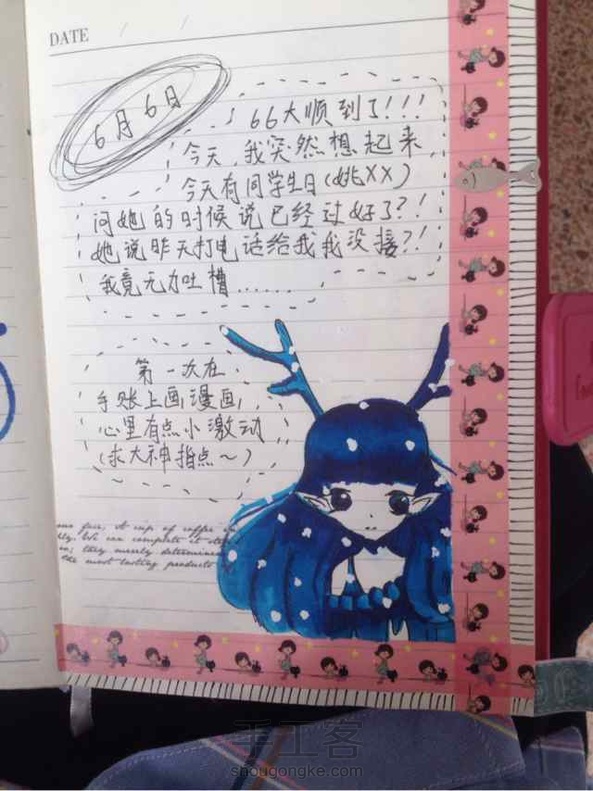 DATE / /
6月6日
66大顺到了!!!
今天,我突然想起来
今天有同学生日(姚XX)
问她的时候说已经过好了?!
她说昨天打电话给我我没接?!
我竟无力吐槽......
第一次在
手账上画漫画,
心里有点小激动
(求大神指点~)
our face, A cup of coffee in
We can complete it
they merely determine
the most lasting products
手工客
shougongke.com